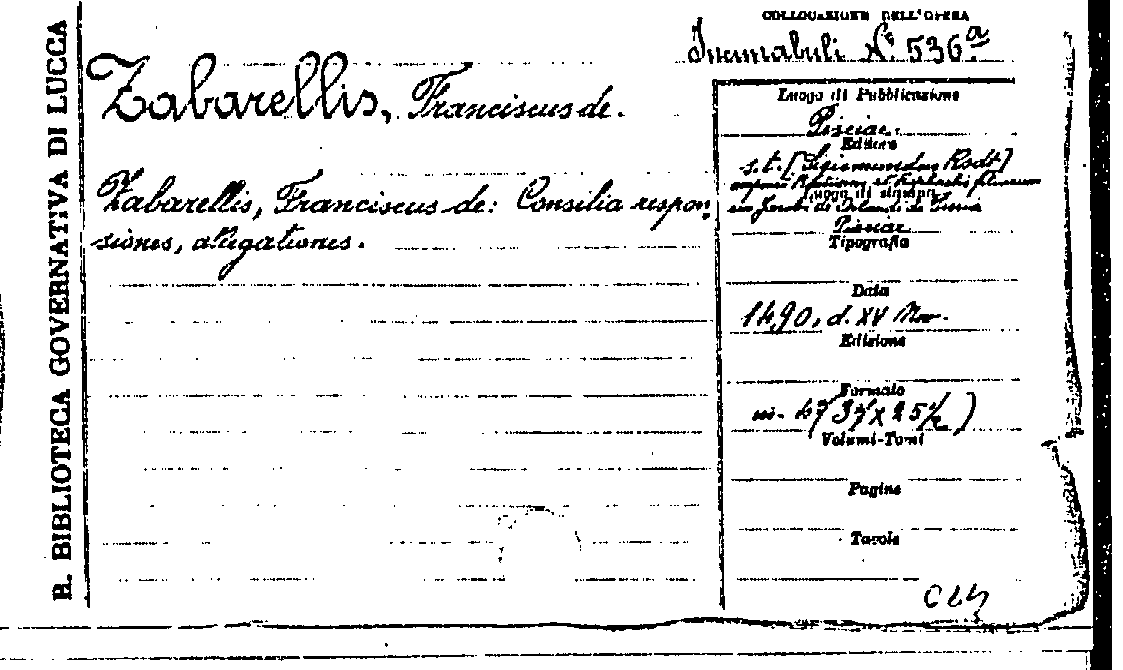 R. BIBLIOTECA GOVERNATIVA DI LUCCA
COLLOCAZIONE DELL'OPERA
Incunabuli N. 536ª
Zabarellis, Franciscus de.
Zabarellis, Franciscus de: Consilia respon-
siones, allegationes.
Luogo di Pubblicazione
Pisciae.
Editore
s. t. [Sigismundus Rodt]
Luogo di stampa
Pisciae
Tipografia
Data
1490, d. XV Nov.
Edizione
Formato
Volumi-Tomi
Pagine
Tavole